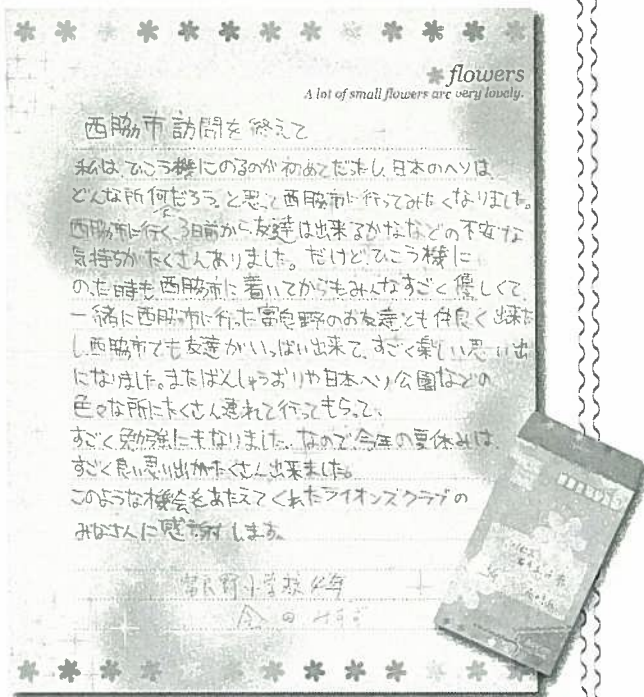 flowers
A lot of small flowers are very lovely.
西脇市訪問を終えて
私は、ひこう機にのるのが初めてだったし、日本のヘソは、
どんな所何だろう。と思って西脇市に行ってみたくなりました。
西脇市に行く、3日前から友達は出来るかななどの不安な
気持ちがたくさんありました。だけど、ひこう機に
のった時も、西脇市に着いてからもみんなすごく優しくて、
一緒に西脇市に行った富良野のお友達とも仲良く出来た
し、西脇市でも友達がいっぱい出来て、すごく楽しい思い出
になりました。またばんしゅうおりや日本ヘソ公園などの
色々な所にたくさん連れて行ってもらって、
すごく勉強にもなりました。なので、今年の夏休みは
すごく良い思い出がたくさん出来ました。
このような機会をあたえてくれたライオンズクラブの
みなさんに感謝します。
富良野小学校